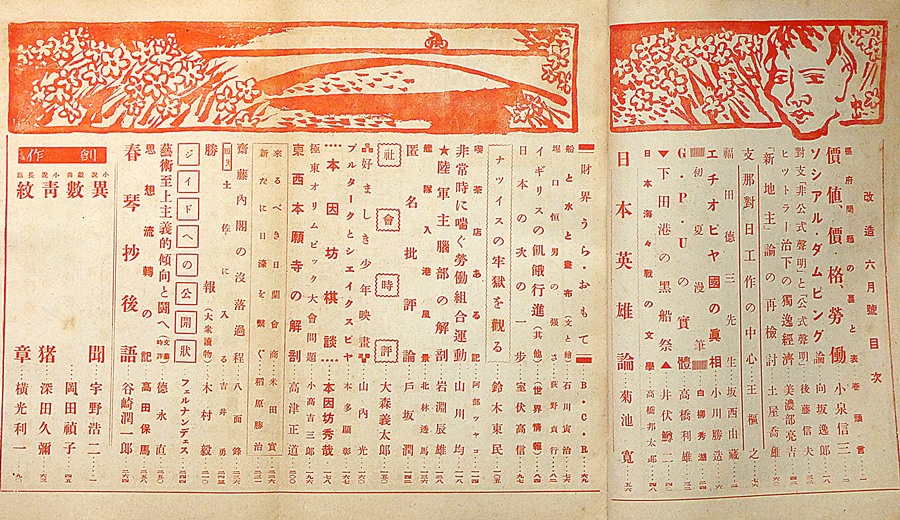 改造六月號目次
巻頭言
區府問題の裏と表
價値、價格、勞働 小泉信三
ソシアル・ダムピング論 向坂逸郎
對支“非公式聲明”と“公式聲明” 後藤信夫
ヒットラー治下の獨逸經濟 美濃部亮吉
「新地主」論の再檢討 土屋喬雄
支那對日工作の中心王樞之
福田德三先生 坂西由藏
エチオピヤ國の眞相 小川勝造
初夏漫筆 白柳秀湖
G・P・Uの實體 高橋利雄
下田港の黑船祭 井伏鱒二
日本海々戰の文學 高橋邦太郎
日本英雄論 菊池寬
財界うら・おもて B・C・R
船と水と晝と布 (文と繪) 石川寅治
堀口恒男の强味
イギリスの飢餓行進(其他) (世界情報)
日本の次の一步 室伏高信
ナツイスの牢獄を觀る 鈴木東民
喫茶店ある記 阿部ツヤコ
非常時に喘ぐ勞働組合運動 山川均
★陸軍主腦部の解剖 岩淵辰雄
艦隊入港風景 北林透馬
匿名批評論 戶坂潤
社會時評 大森義太郎
好ましき少年映畫 山內光
プルタークとシェイクスピヤ 本多顯彰
本因坊棋談 本因坊秀哉
極東オリムピック大會問題 小高吉三郎
東西本願寺の解剖 高津正道
來るべき日蘭商會 米田實
新たに日濠を繫ぐ 稻原勝治
齋藤內閣の沒落過程 八面鋒
土佐に入る 吉井勇
勝報 (大衆讀物) 木村毅
ジイドへの公開狀 フェルナンデス
藝術至上主義的傾向と鬪へ(文藝時評) 德永直
思想流轉の記 高田保馬
春琴抄後語 谷崎潤一郎
創作
異聞 宇野浩二
數 岡田禎子
靑猪 深田久彌
紋章 橫光利一